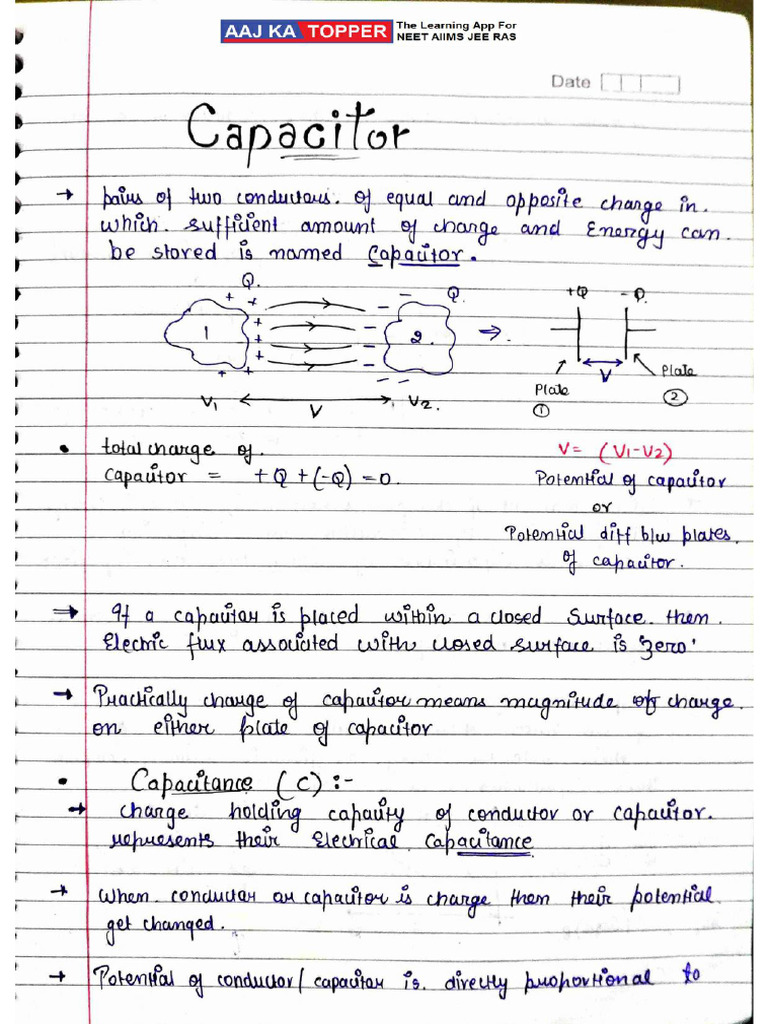 AAJ KA TOPPER The Learning App For
NEET AIIMS JEE RAS
Date
Capacitor
→ pairs of two conductors. of equal and opposite charge in.
which. sufficient amount of charge and Energy can.
be stored is named Capacitor.
Q. Q. +Q -Q.
1 2. ⇒.
V
Plate ① Plate ②
V₁ V V₂.
• total charge of.
capacitor = +Q + (-Q) = 0.
V = (V₁-V₂)
Potential of capacitor
or
Potential diff b/w plates.
of capacitor.
⇒ If a capacitor is placed within a closed surface. then.
Electric flux associated with closed surface is 'zero'
→ Practically charge of capacitor means magnitude of charge.
on either plate of capacitor
• Capacitance (C) :-
→ charge holding capacity of conductor or capacitor.
represents their Electrical Capacitance
→ when. conductor or capacitor is charge then their potential
get changed.
→ Potential of conductor/capacitor is. directly proportional to